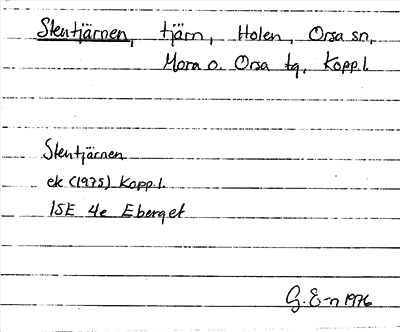 Stentjärnen, tjärn, Holen, Orsa sn,
Mora o. Orsa tg, Kopp.l.
Stentjärnen
ek (1975) Kopp.l.
15E 4e Eberget
G. E-n 1976